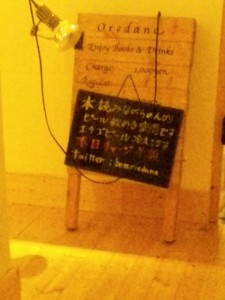 Oredane
Enjoy Books & Drinks
Charge: 1,000yen
本読みながらのんびり
ビール飲める空間です
エチゴビール冷えてます
本日チャージ
Twitter : beeriedana